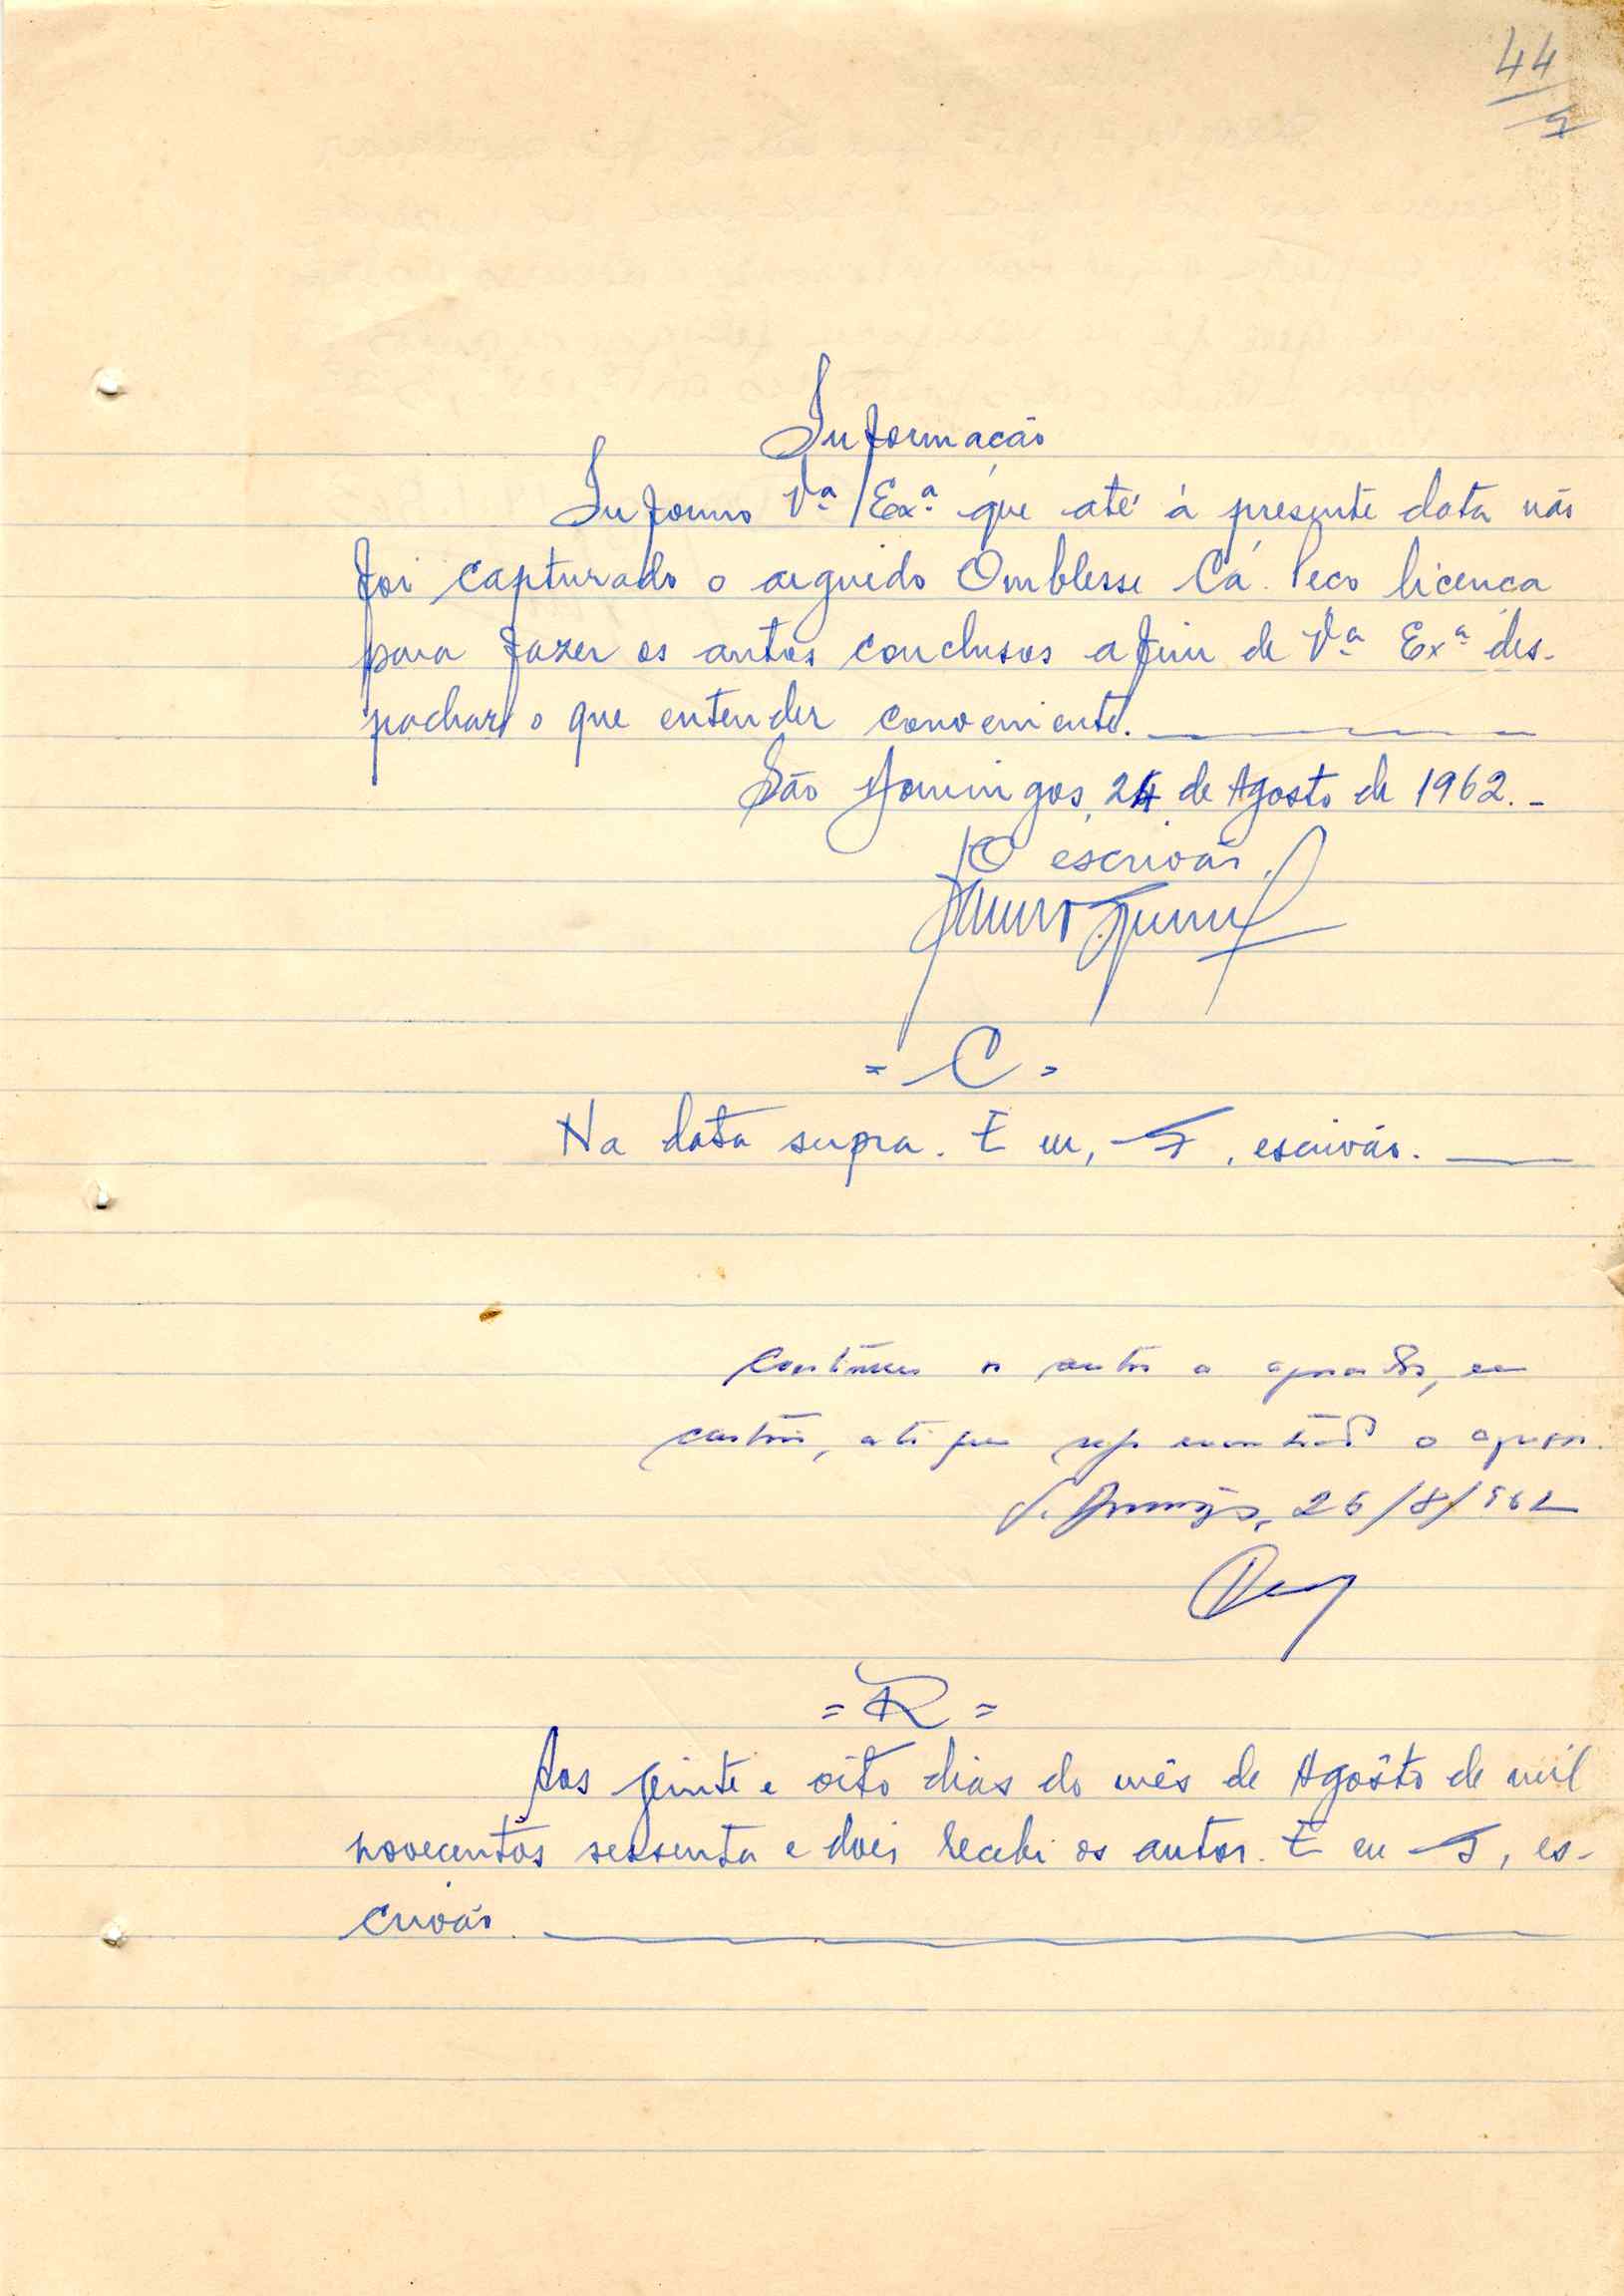 44
Informação
Informo Vª Exª que até à presente data não
foi capturado o arguido Omblesse Cá. Peço licença
para fazer os autos conclusos afim de Vª Exª des-
pachar o que entender conveniente.
São Domingos, 24 de Agosto de 1962.-
O escrivão,
= C =
Na data supra. E eu, escrivão.
os autos a aguardar, em
cartório, até que seja o
S. Domingos, 26/8/962
= R =
Aos vinte e oito dias do mês de Agôsto de mil
novecentos sessenta e dois recebi os autos. E eu , es-
crivão.